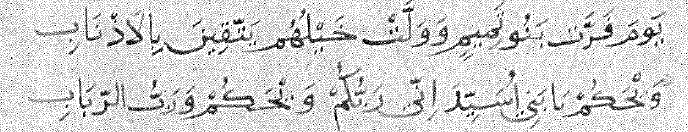 يَومَ فَرَّتْ بَنُو تَمِيمٍ وَوَلَّتْ خَيْلُهُم يَتَّقِينَ بِالاَذْنَابِ
وَيْحَكُمْ يَا بَنِي أُسَيِّد اِنِّي رَبُّكُمْ وَيْحَكُمْ وَرَبُّ الرَّبَابِ